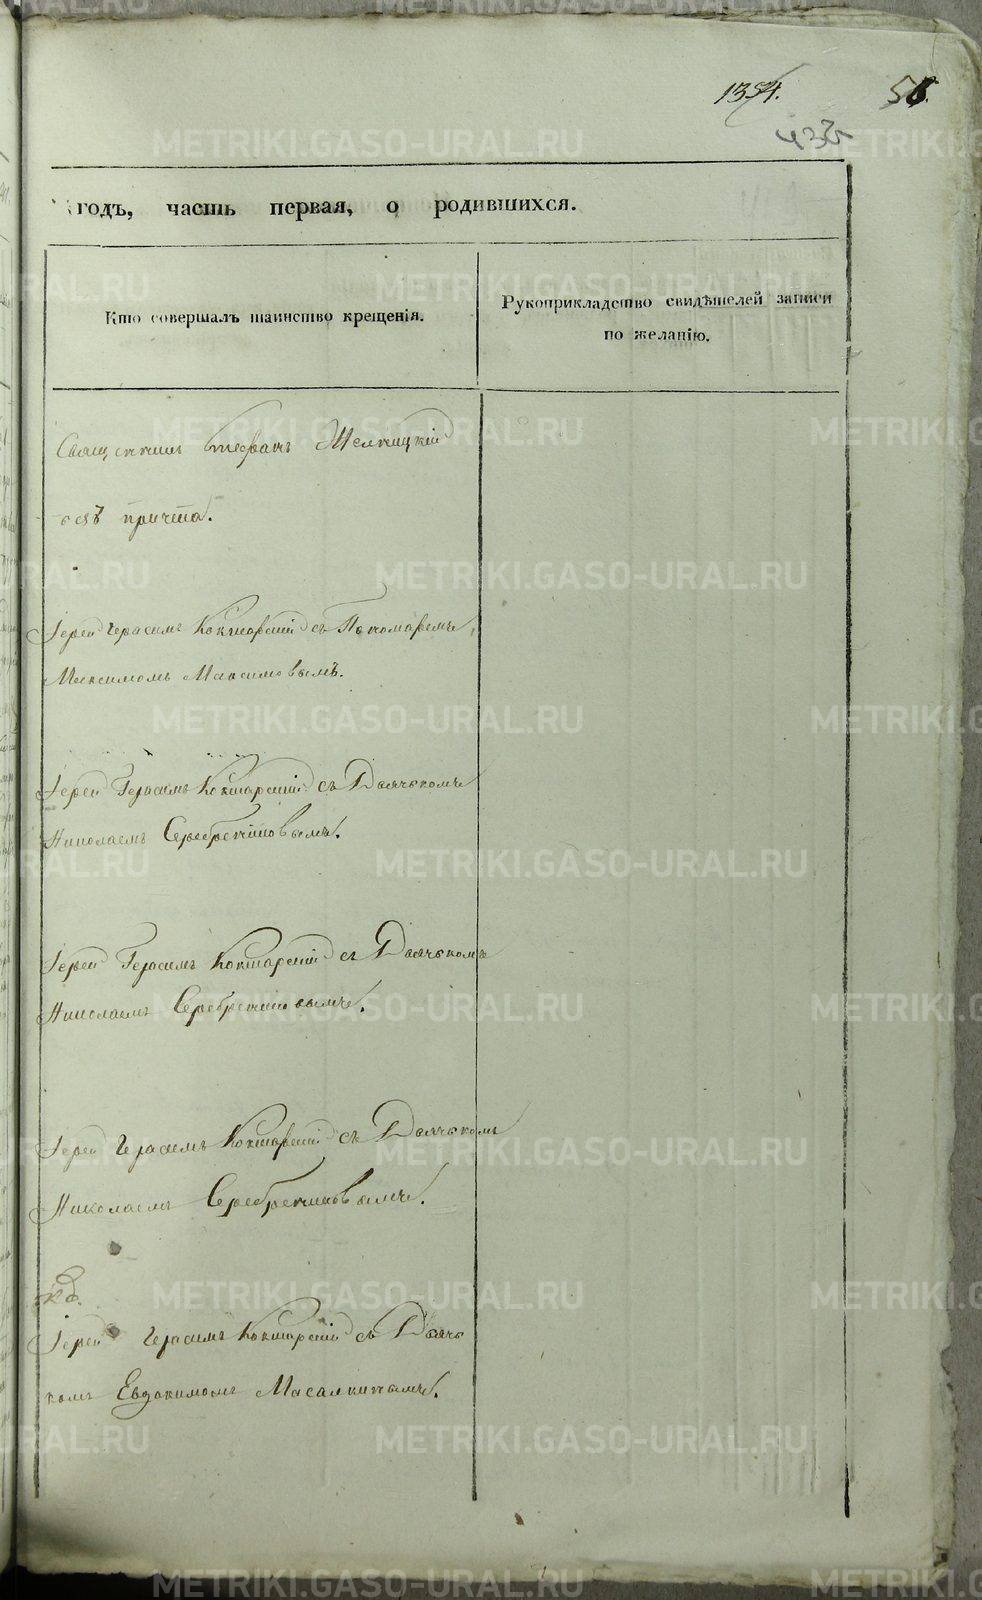 1354.
58.
435
годъ, часть первая, о родившихся.
Кто совершалъ таинство крещенія.
Рукоприкладство свидѣтелей записи
по желанію.
Священникъ Стефанъ
безъ причта.
Іерей Герасимъ Кокшарскій съ Пономаремъ
Максимомъ Максимовымъ.
Іерей Герасимъ Кокшарскій съ Дьячкомъ
Николаемъ Серебрениковымъ.
Іерей Герасимъ Кокшарскій съ Дьячкомъ
Николаемъ Серебрениковымъ.
Іерей Герасимъ Кокшарскій съ Дьячкомъ
Николаемъ Серебрениковымъ.
Іерей Герасимъ Кокшарскій съ Дьяч
комъ Евдокимомъ Масалкинымъ.
METRIKI.GASO-URAL.RU